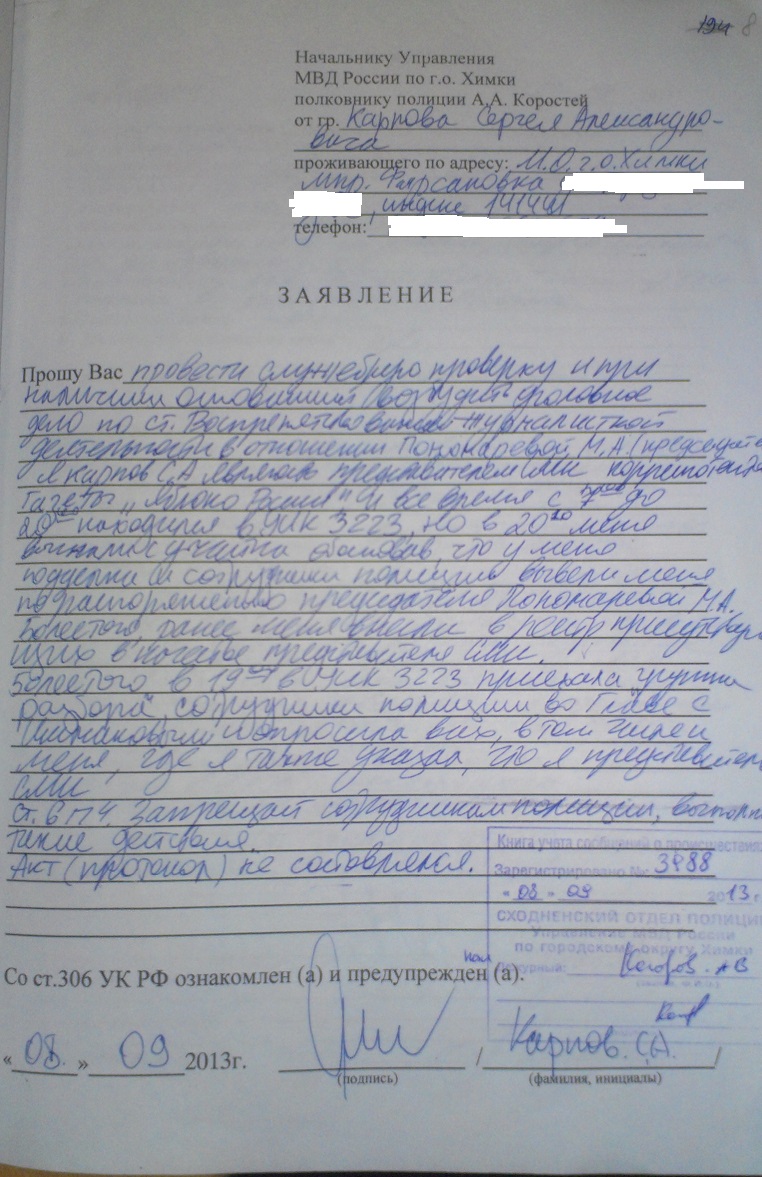 8
Начальнику Управления
МВД России по г.о. Химки
полковнику полиции А.А. Коростей
от гр. Карпова Сергея Александро-
вича
проживающего по адресу: М.О. г.о. Химки
мкр. Фирсановка
, индекс 141401
телефон:
ЗАЯВЛЕНИЕ
Прошу Вас провести служебную проверку и при
наличии оснований возбудить уголовное
дело по ст. Воспрепятствование журналисткой
деятельности в отношении Пономаревой М.А. (председат
Я Карпов С.А являюсь представителем СМИ корреспондент
Газеты „Яблоко России" и все время с 7 до
20 находился в УИК 3223, но в 20 меня
выгнали с участка обосновав, что у меня
сотрудники полиции вывели меня
по распоряжению председателя Пономаревой М.А.
Более того, ранее меня внесли в реестр присутству
щих в качестве представителя СМИ.
Более того в 19 в УИК 3223 приехала группа
разбора сотрудники полиции во главе с
и опросила всех, в том числе и
меня, где я также указал, что я представитель
СМИ
Ст. 6 п 4. Запрещает сотрудникам полиции, выполн
такие действия.
Акт (протокол) не составлялся.
Книга учета сообщений о происшествиях
Зарегистрировано № 3988
« 08 » 09 2013 г.
СХОДНЕНСКИЙ ОТДЕЛ ПОЛИЦИИ
Управление МВД России
по городскому округу Химки
Дежурный:
Со ст.306 УК РФ ознакомлен (а) и предупрежден (а).
« 08. » 09 2013г. / Карпов. С.А. /
(подпись) (фамилия, инициалы)